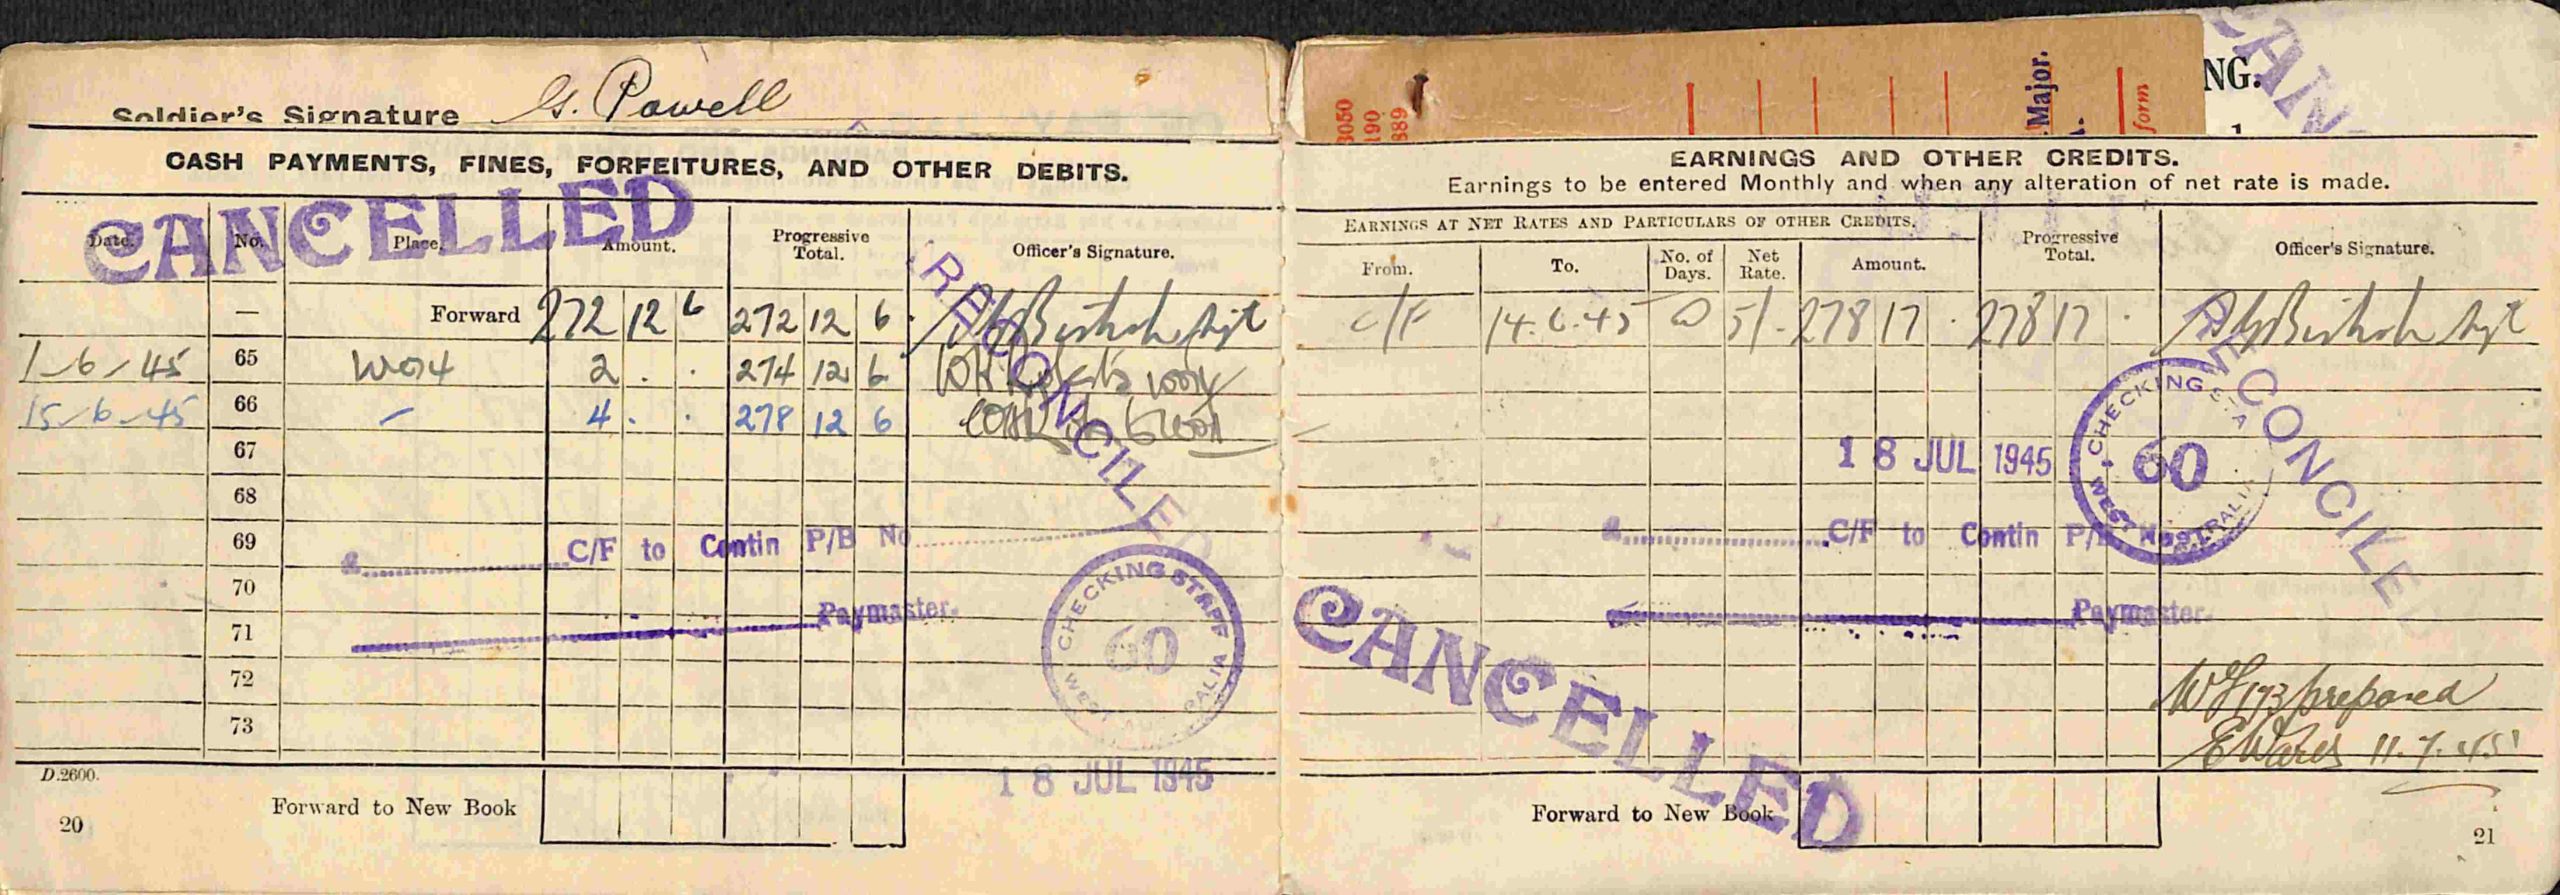 Soldier's Signature G. Powell
CASH PAYMENTS, FINES, FORFEITURES, AND OTHER DEBITS.
CANCELLED
Date. No. Place. Amount. Progressive Total. Officer's Signature.
— Forward 272 12 6 272 12 6
1-6-45 65 WO14 2 . . 274 12 6
15-6-45 66 — 4 . . 278 12 6
67
68
69
70
71
72
73
RECONCILED
C/F to Contin P/B No
Paymaster.
CHECKING STAFF
60
WEST AUSTRALIA
18 JUL 1945
D.2600.
Forward to New Book
20
3050
190
889
Major.
form
NG.
CAN
EARNINGS AND OTHER CREDITS.
Earnings to be entered Monthly and when any alteration of net rate is made.
EARNINGS AT NET RATES AND PARTICULARS OF OTHER CREDITS.
From. To. No. of Days. Net Rate. Amount. Progressive Total. Officer's Signature.
C/F 14.6.45 @ 5/- 278 17 . 278 17 .
RECONCILE
18 JUL 1945
CHECKING STA
60
WEST AUSTRALIA
C/F to Contin P/B No
Paymaster.
CANCELLED
prepared
11.7.45
Forward to New Book
21